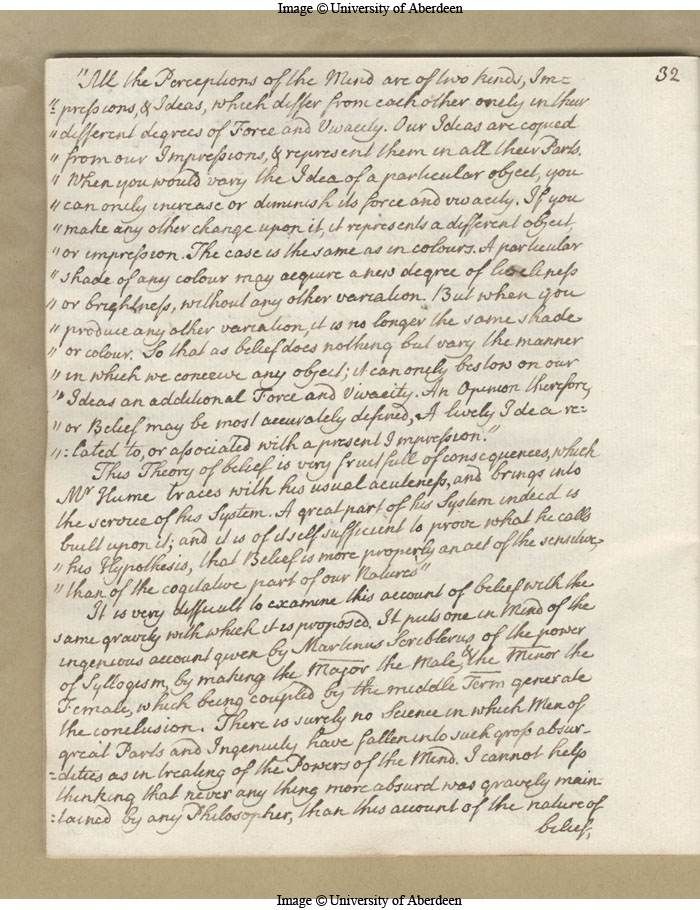 Image © University of Aberdeen
32
"All the Perceptions of the Mind are of two kinds, Im=
"= pressions, & Ideas, which differ from each other onely in their
" different degrees of Force and Vivacity. Our Ideas are copied
" from our Impressions, & represent them in all their Parts.
" When you would vary the Idea of a particular object, you
" can onely increase or diminish its force and vivacity. If you
" make any other change upon it, it represents a different object,
" or impression. The case is the same as in colours. A particular
" shade of any colour may acquire a new degree of liveliness
" or brightness, without any other variation. But when you
" produce any other variation, it is no longer the same shade
" or colour. So that as belief does nothing but vary the manner
" in which we conceive any object; it can onely bestow on our
" Ideas an additional Force and Vivacity. An Opinion therefore,
" or Belief may be most accurately defined, A lively Idea re=
" =lated to, or associated with a present Impression."
This Theory of belief is very fruitfull of consequences, which
Mr Hume traces with his usual acuteness, and brings into
the service of his System. A great part of his System indeed is
built upon it; and it is of itself sufficient to prove what he calls
" his Hypothesis, that Belief is more properly an act of the sensitive
" than of the cogitative part of our Natures"
It is very difficult to examine this account of belief with the
same gravity with which it is proposed. It puts one in Mind of the
ingenious account given by Martinus Scriblerus of the power
of Syllogism, by making the Major the Male, & the Minor the
Female, which being coupled by the middle Term generate
the conclusion. There is surely no Science in which Men of
great Parts and Ingenuity have fallen into such gross absur-
=dities as in treating of the Powers of the Mind. I cannot help
thinking that never any thing more absurd was gravely main-
:tained by any Philosopher, than this account of the nature of
belief,
Image © University of Aberdeen